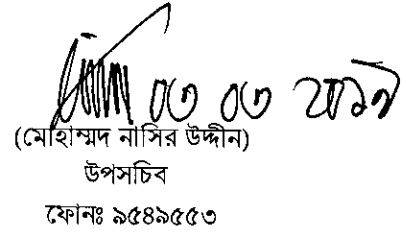 ০৩ ০৩ ২০১৭
(মোহাম্মদ নাসির উদ্দীন)
উপসচিব
ফোনঃ ৯৫৪৯৫৫৩